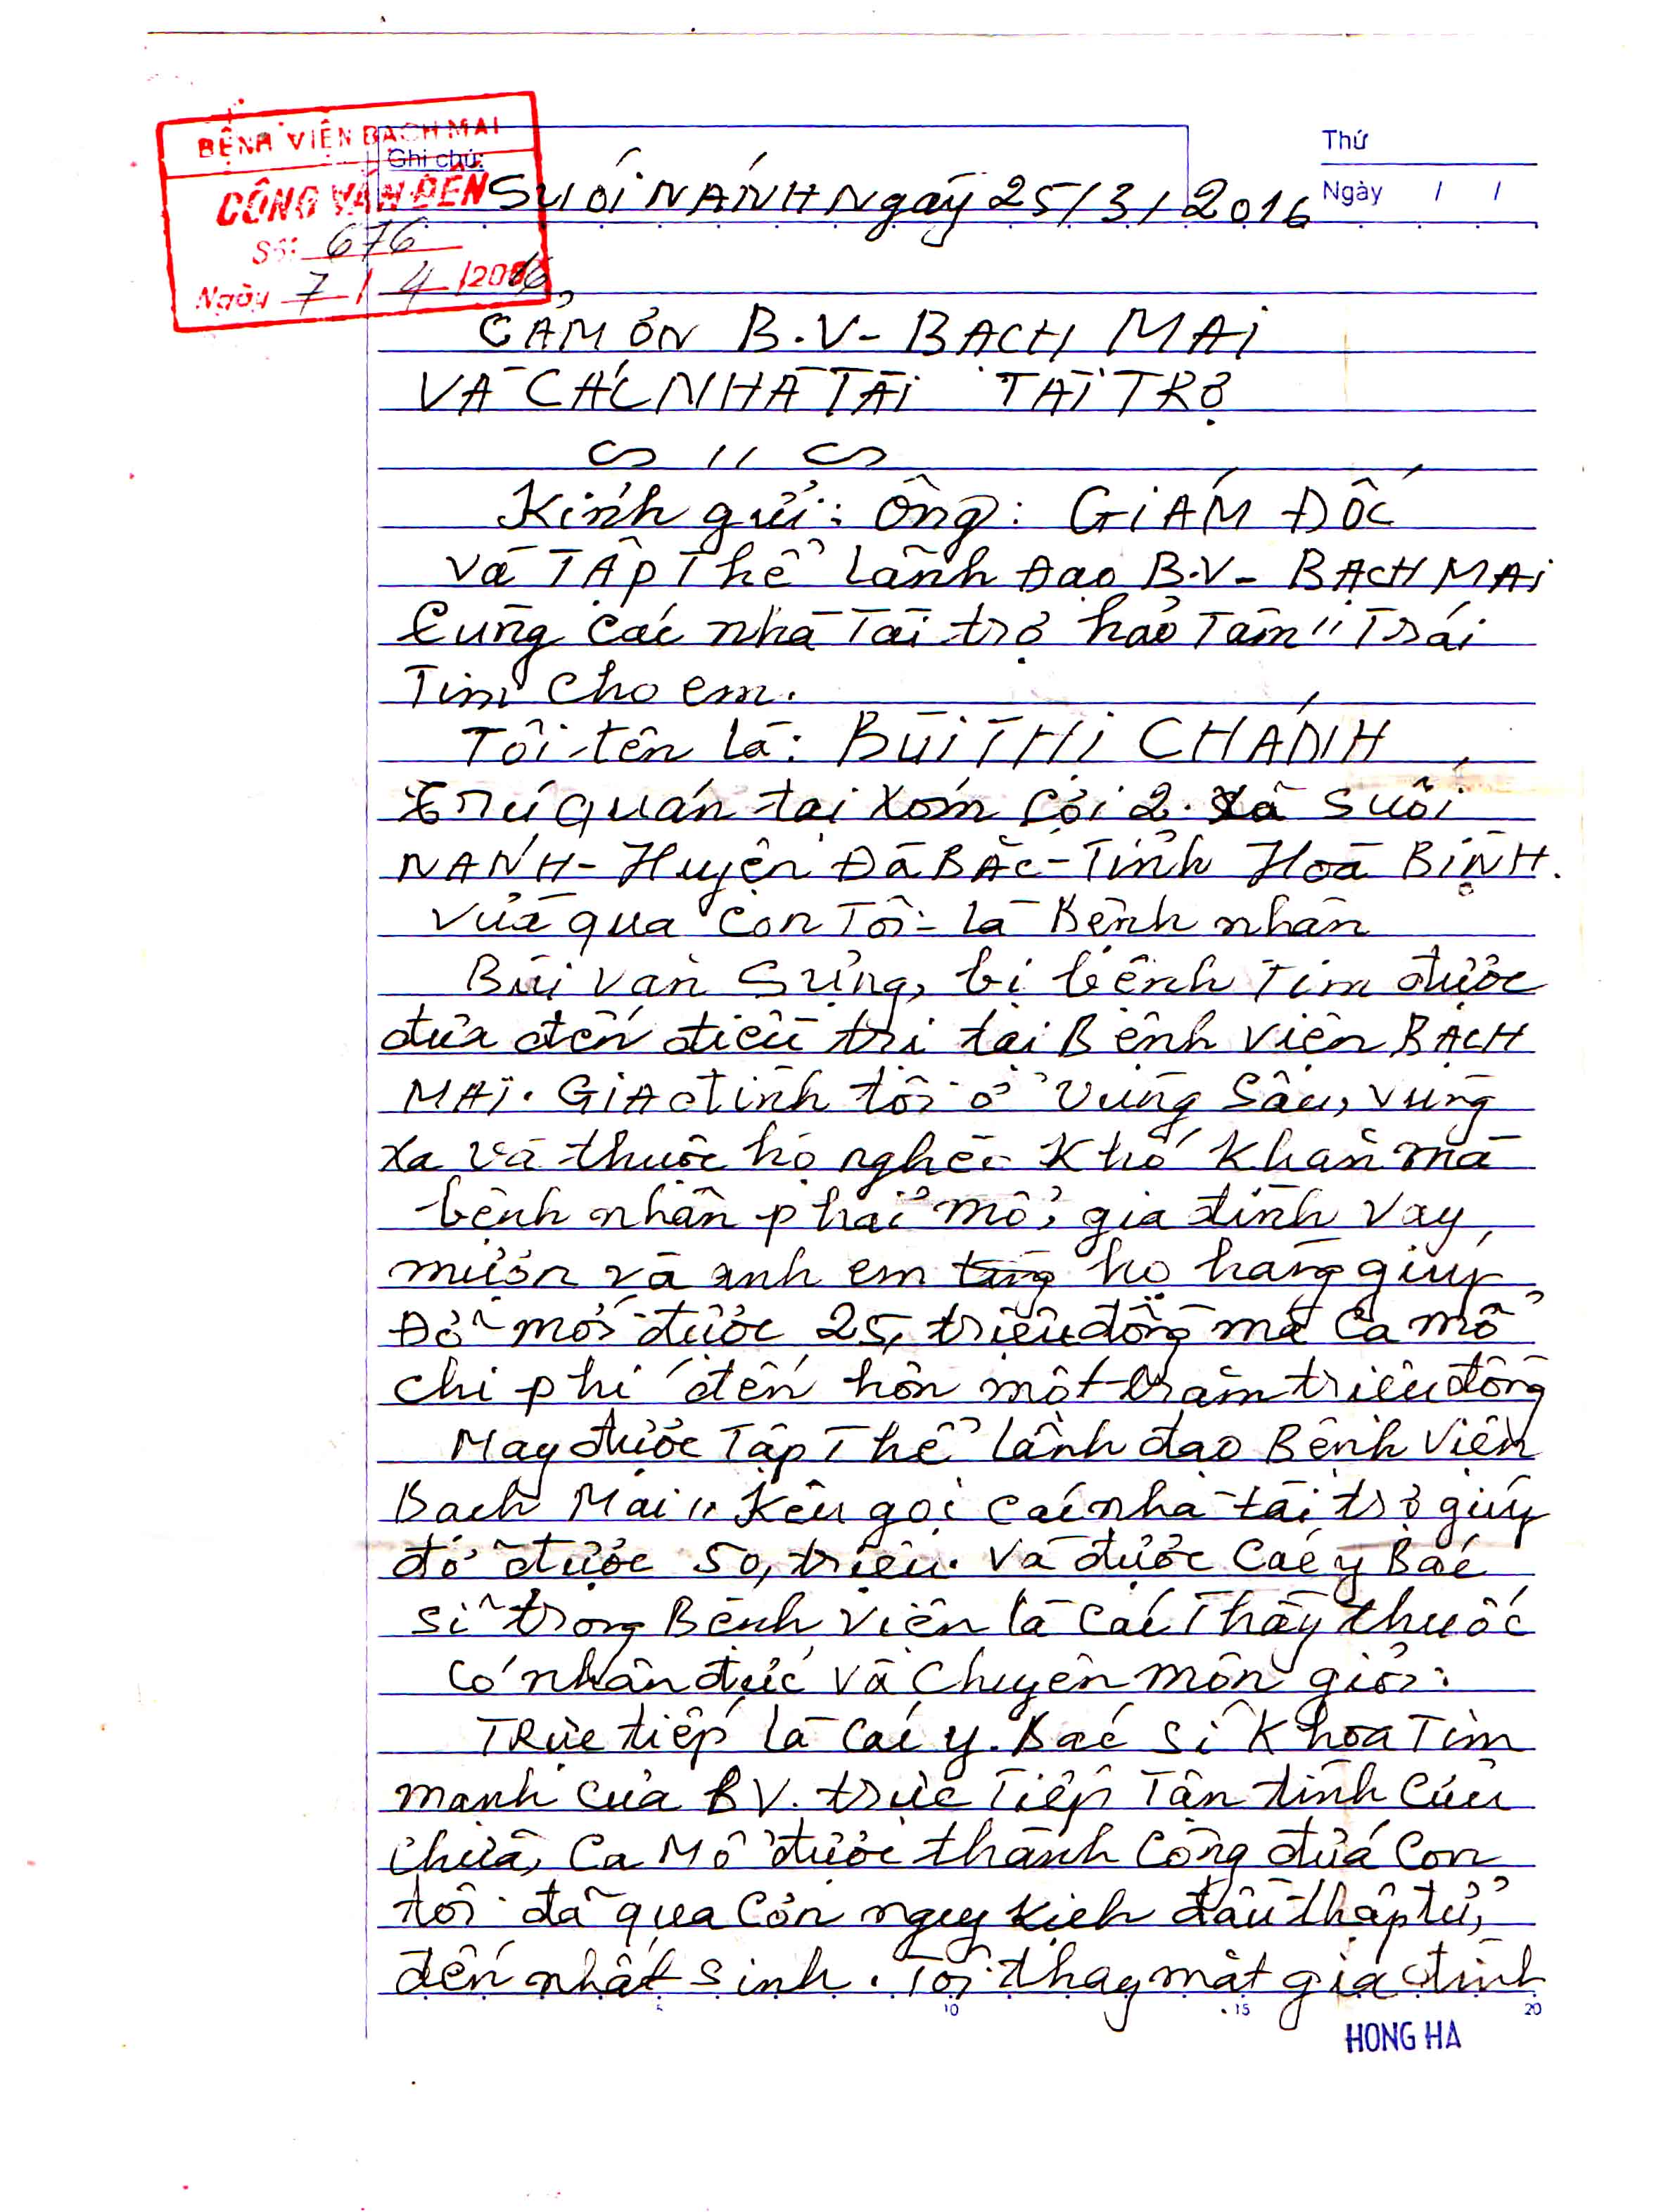 BỆNH VIỆN BẠCH MAI
CÔNG VĂN ĐẾN
Số: 676
Ngày 7 / 4 /2016
Ghi chú:
Thứ
Ngày / /
SUỐI NÁNH Ngày 25/3/2016
CẢM ƠN B.V- BẠCH MAI
VÀ CÁC NHÀ TÀI TÀI TRỢ
Kính gửi: Ông: GIÁM ĐỐC
và TẬP Thể Lãnh Đạo B.V- BẠCH MAI
Cùng các nhà Tài trợ hảo Tâm "Trái
Tim cho em.
Tôi tên là: BÙI THỊ CHÁNH
trú quán tại Xóm Cơi 2. Xã Suối
NÁNH- Huyện ĐÀ BẮC- Tỉnh Hoà BÌNH.
Vừa qua con Tôi- là Bệnh nhân
Bùi Văn Sửng, bị bệnh Tim được
đưa đến điều trị tại Bệnh Viện BẠCH
MAI. GIA đình tôi ở Vùng Sâu, vùng
xa và thuộc hộ nghèo Khó Khăn mà
bệnh nhân phải mổ, gia đình vay
mượn và anh em họ hàng giúp
Đỡ mới được 25, triệu đồng mà Ca mổ
chi phí đến hơn một trăm triệu đồng
May được Tập Thể Lãnh đạo Bệnh Viện
Bạch Mai " Kêu gọi các nhà tài trợ giúp
đỡ được 50, triệu. Và được Các y Bác
sĩ trong Bệnh Viện là các Thầy thuốc
có nhân đức và Chuyên môn giỏi.
TRực tiếp là các y. Bác sĩ Khoa Tim
mạnh của BV. trực Tiếp Tận tình Cứu
chữa, Ca Mổ được thành công đứa con
tôi đã qua cơn nguy kịch đầu thập tử,
đến nhất sinh. Tôi thay mặt gia đình
5 10 15 20
HONG HA